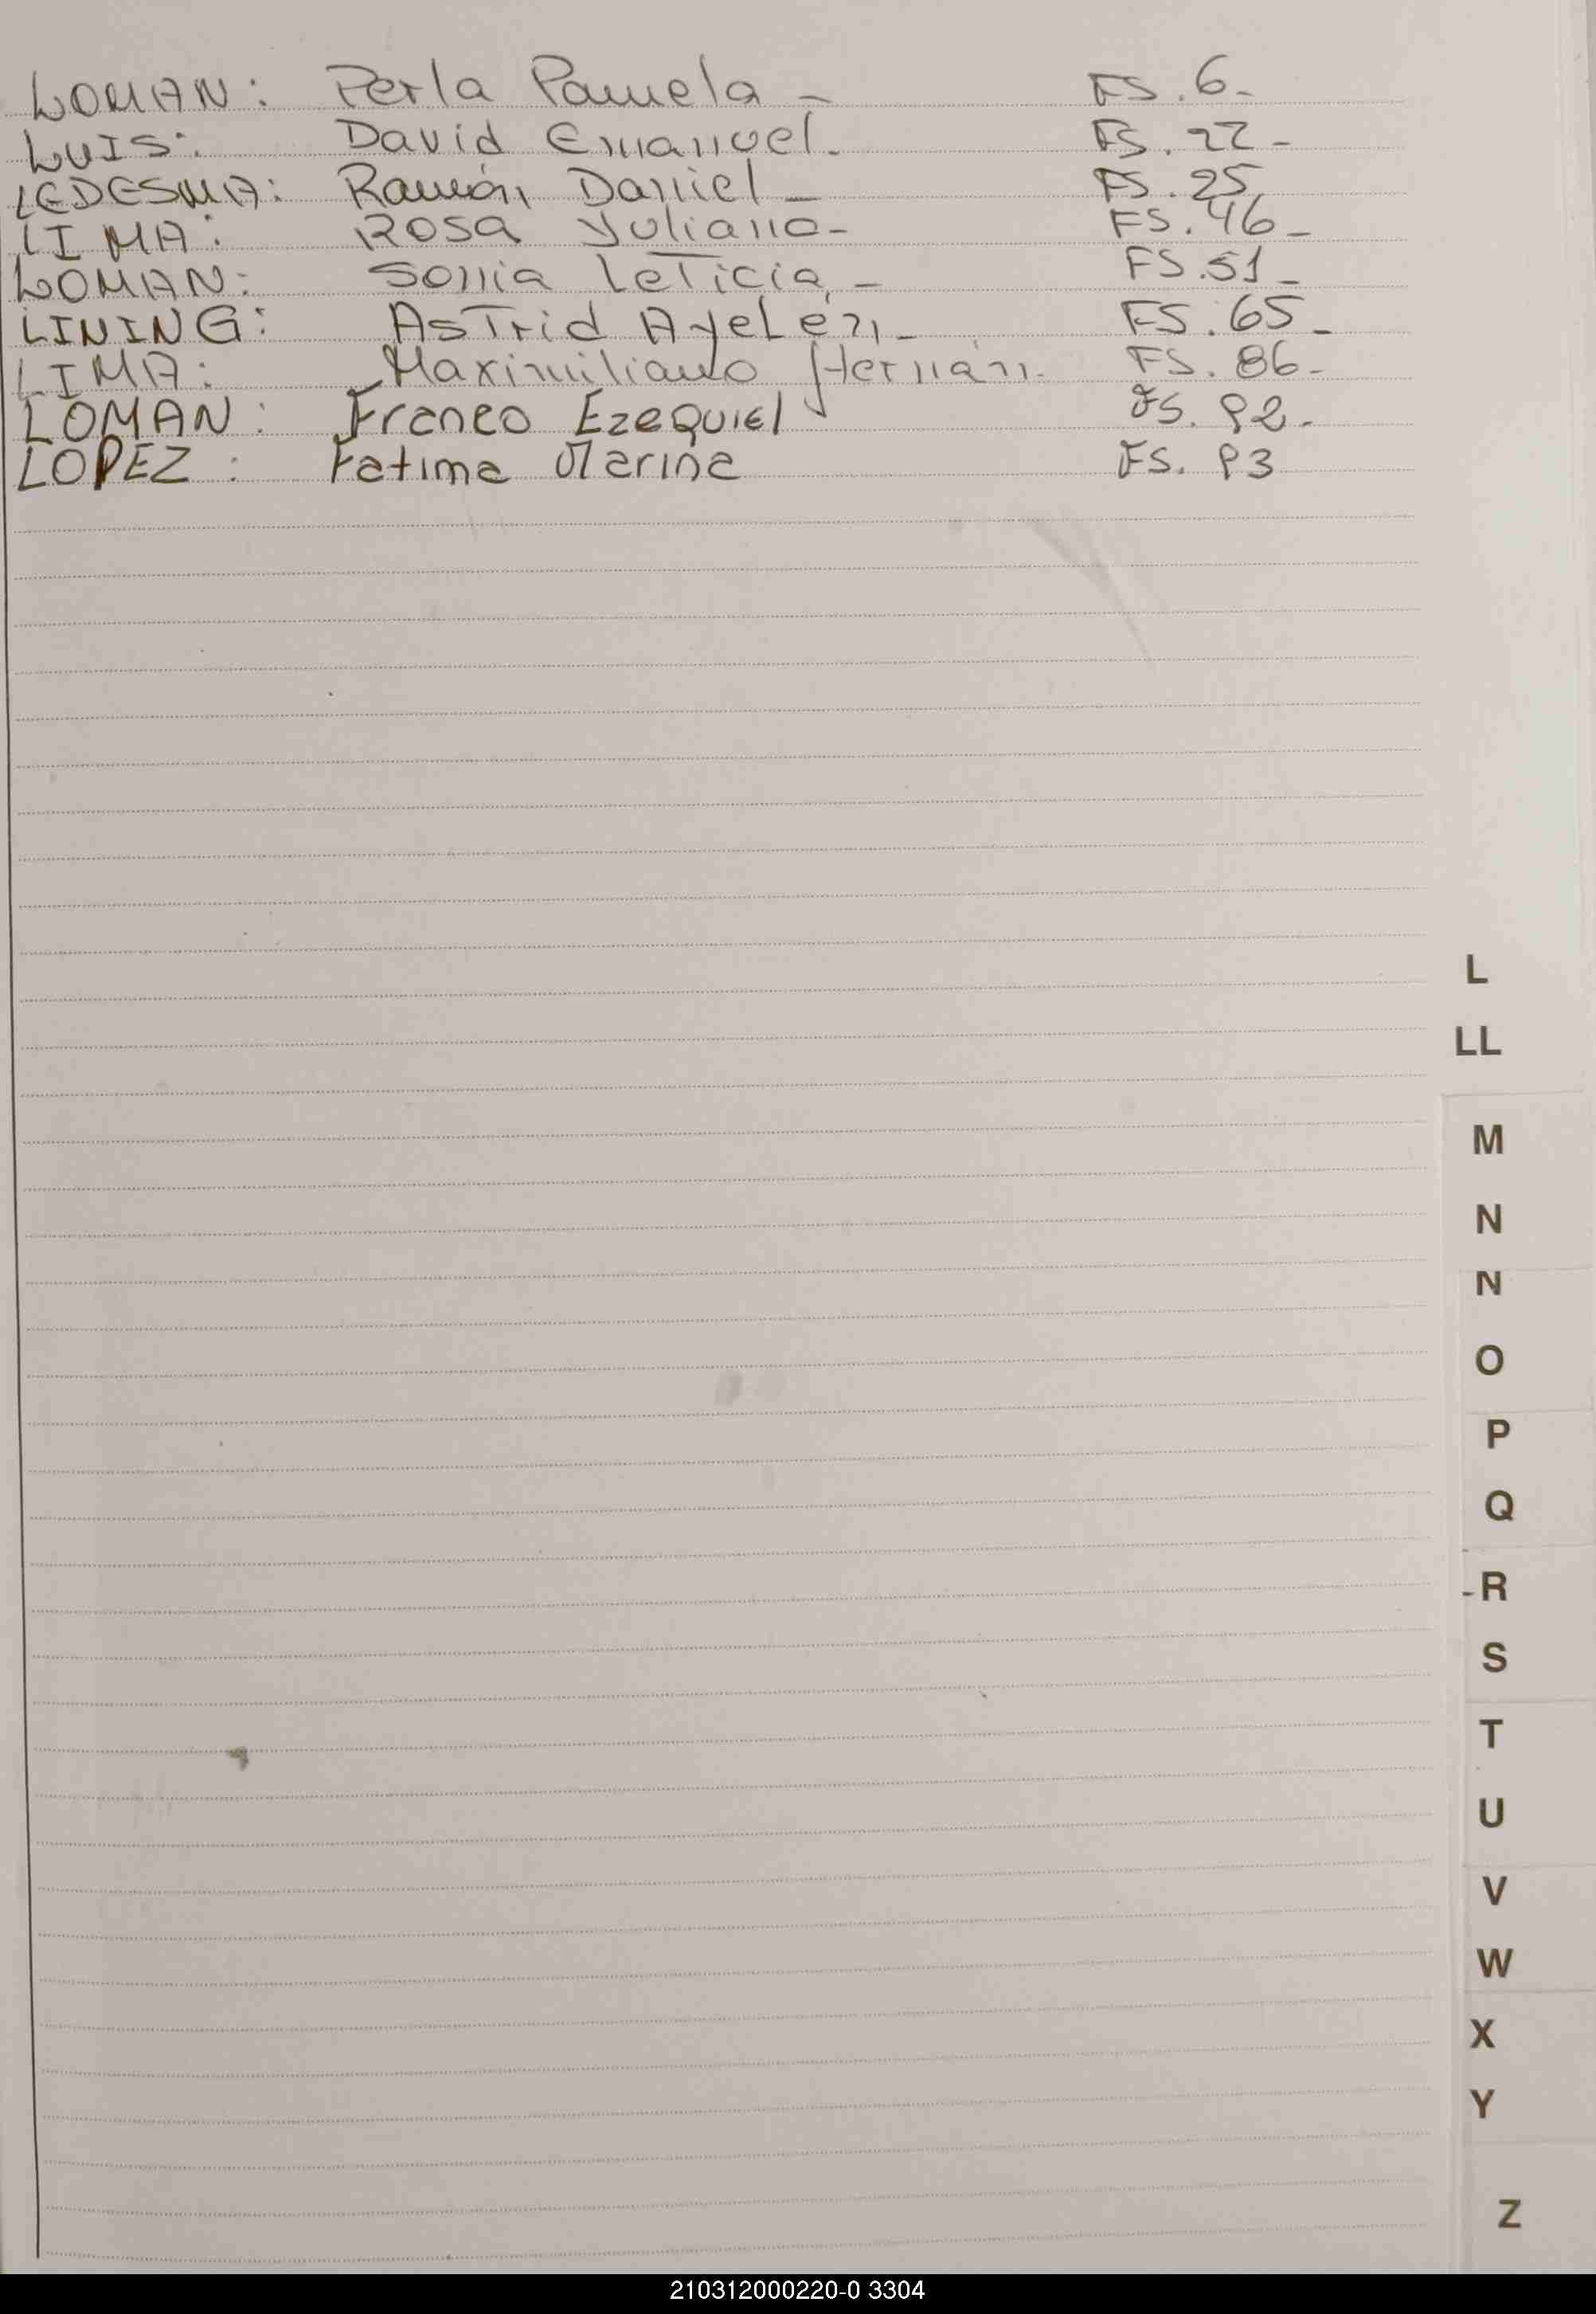 LOMAN: Perla Pamela - FS. 6-
LUIS: David Emanuel. FS. 22-
LEDESMA: Ramón Daniel - FS. 25
LIMA: Rosa Yuliana- FS. 46-
LOMAN: Sonia Leticia - FS. 51-
LINING: Astrid Ayelén - FS. 65-
LIMA: Maximiliano Hernán. FS. 86-
LOMAN: Franco Ezequiel FS. 92.
LOPEZ: Fatima Marina FS. 93
L
LL
M
N
N
O
P
Q
-R
S
T
U
V
W
X
Y
Z
210312000220-0 3304